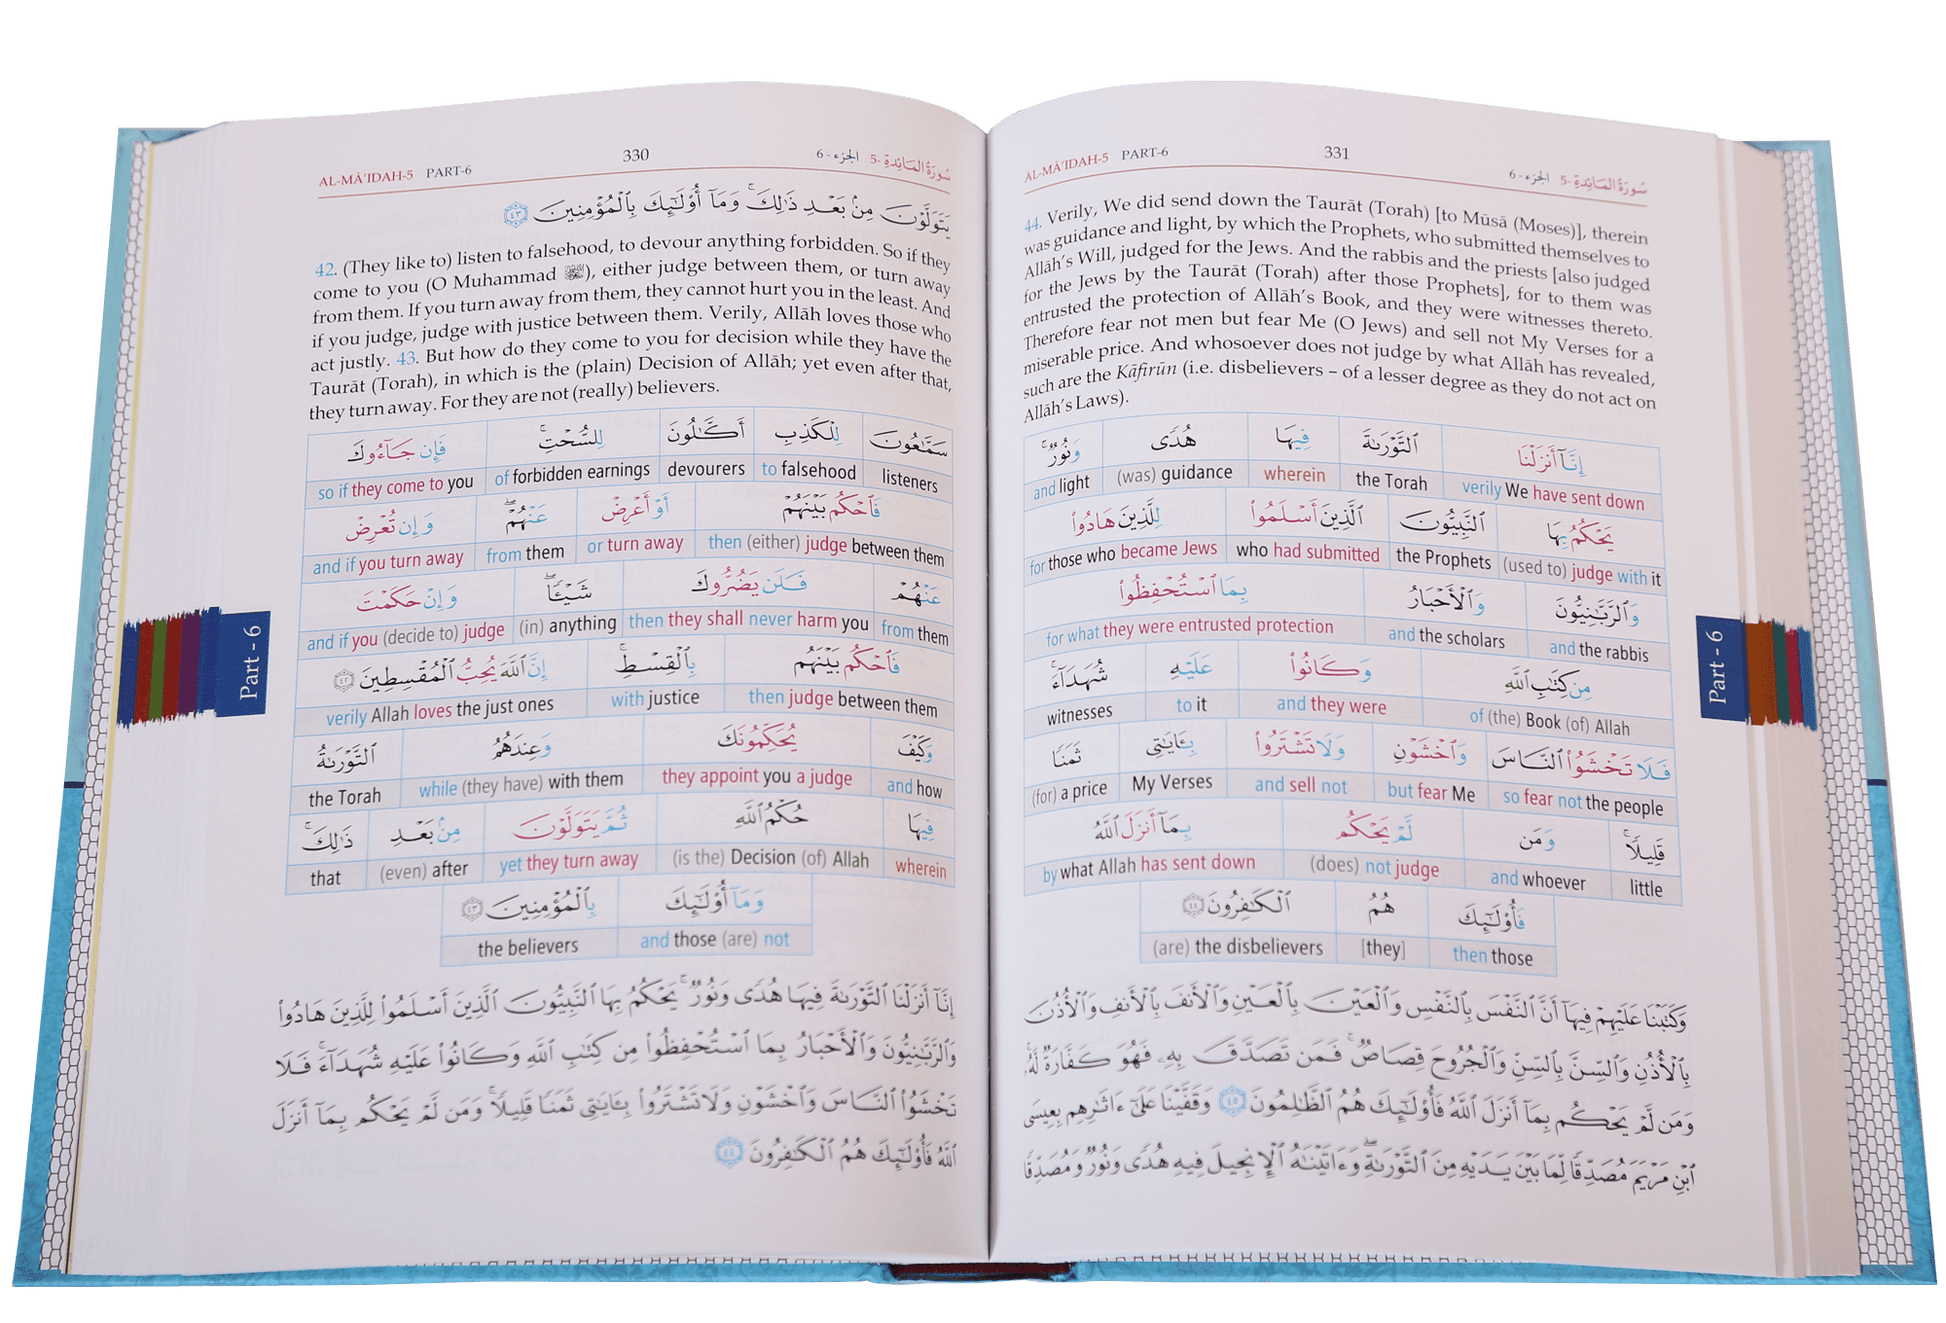 AL-MĀ'IDAH-5 PART-6 330 الجزء - 6 سورة المائدة -5
يَتَوَلَّوْنَ مِنۢ بَعْدِ ذَٰلِكَ ۚ وَمَآ أُو۟لَـٰٓئِكَ بِٱلْمُؤْمِنِينَ ٤٣
42. (They like to) listen to falsehood, to devour anything forbidden. So if they
come to you (O Muhammad ﷺ), either judge between them, or turn away
from them. If you turn away from them, they cannot hurt you in the least. And
if you judge, judge with justice between them. Verily, Allāh loves those who
act justly. 43. But how do they come to you for decision while they have the
Taurāt (Torah), in which is the (plain) Decision of Allāh; yet even after that,
they turn away. For they are not (really) believers.
سَمَّـٰعُونَ لِلْكَذِبِ أَكَّـٰلُونَ لِلسُّحْتِ ۚ فَإِن جَآءُوكَ
so if they come to you of forbidden earnings devourers to falsehood listeners
فَٱحْكُم بَيْنَهُمْ أَوْ أَعْرِضْ عَنْهُمْ ۖ وَإِن تُعْرِضْ
and if you turn away from them or turn away then (either) judge between them
عَنْهُمْ فَلَن يَضُرُّوكَ شَيْـًٔا ۖ وَإِنْ حَكَمْتَ
and if you (decide to) judge (in) anything then they shall never harm you from them
فَٱحْكُم بَيْنَهُم بِٱلْقِسْطِ ۚ إِنَّ ٱللَّهَ يُحِبُّ ٱلْمُقْسِطِينَ ٤٢
verily Allah loves the just ones with justice then judge between them
وَكَيْفَ يُحَكِّمُونَكَ وَعِندَهُمُ ٱلتَّوْرَىٰةُ
the Torah while (they have) with them they appoint you a judge and how
فِيهَا حُكْمُ ٱللَّهِ ثُمَّ يَتَوَلَّوْنَ مِنۢ بَعْدِ ذَٰلِكَ ۚ
that (even) after yet they turn away (is the) Decision (of) Allah wherein
وَمَآ أُو۟لَـٰٓئِكَ بِٱلْمُؤْمِنِينَ ٤٣
the believers and those (are) not
إِنَّآ أَنزَلْنَا ٱلتَّوْرَىٰةَ فِيهَا هُدًى وَنُورٌ ۚ يَحْكُمُ بِهَا ٱلنَّبِيُّونَ ٱلَّذِينَ أَسْلَمُوا۟ لِلَّذِينَ هَادُوا۟
وَٱلرَّبَّـٰنِيُّونَ وَٱلْأَحْبَارُ بِمَا ٱسْتُحْفِظُوا۟ مِن كِتَـٰبِ ٱللَّهِ وَكَانُوا۟ عَلَيْهِ شُهَدَآءَ ۚ فَلَا
تَخْشَوُا۟ ٱلنَّاسَ وَٱخْشَوْنِ وَلَا تَشْتَرُوا۟ بِـَٔايَـٰتِى ثَمَنًا قَلِيلًا ۚ وَمَن لَّمْ يَحْكُم بِمَآ أَنزَلَ
ٱللَّهُ فَأُو۟لَـٰٓئِكَ هُمُ ٱلْكَـٰفِرُونَ ٤٤
Part - 6
AL-MĀ'IDAH-5 PART-6 331 الجزء - 6 سورة المائدة -5
44. Verily, We did send down the Taurāt (Torah) [to Mūsā (Moses)], therein
was guidance and light, by which the Prophets, who submitted themselves to
Allāh's Will, judged for the Jews. And the rabbis and the priests [also judged
for the Jews by the Taurāt (Torah) after those Prophets], for to them was
entrusted the protection of Allāh's Book, and they were witnesses thereto.
Therefore fear not men but fear Me (O Jews) and sell not My Verses for a
miserable price. And whosoever does not judge by what Allāh has revealed,
such are the Kāfirūn (i.e. disbelievers – of a lesser degree as they do not act on
Allāh's Laws).
إِنَّآ أَنزَلْنَا ٱلتَّوْرَىٰةَ فِيهَا هُدًى وَنُورٌ ۚ
and light (was) guidance wherein the Torah verily We have sent down
يَحْكُمُ بِهَا ٱلنَّبِيُّونَ ٱلَّذِينَ أَسْلَمُوا۟ لِلَّذِينَ هَادُوا۟
for those who became Jews who had submitted the Prophets (used to) judge with it
وَٱلرَّبَّـٰنِيُّونَ وَٱلْأَحْبَارُ بِمَا ٱسْتُحْفِظُوا۟
for what they were entrusted protection and the scholars and the rabbis
مِن كِتَـٰبِ ٱللَّهِ وَكَانُوا۟ عَلَيْهِ شُهَدَآءَ ۚ
witnesses to it and they were of (the) Book (of) Allah
فَلَا تَخْشَوُا۟ ٱلنَّاسَ وَٱخْشَوْنِ وَلَا تَشْتَرُوا۟ بِـَٔايَـٰتِى ثَمَنًا
(for) a price My Verses and sell not but fear Me so fear not the people
قَلِيلًا ۚ وَمَن لَّمْ يَحْكُم بِمَآ أَنزَلَ ٱللَّهُ
by what Allah has sent down (does) not judge and whoever little
فَأُو۟لَـٰٓئِكَ هُمُ ٱلْكَـٰفِرُونَ ٤٤
(are) the disbelievers [they] then those
وَكَتَبْنَا عَلَيْهِمْ فِيهَآ أَنَّ ٱلنَّفْسَ بِٱلنَّفْسِ وَٱلْعَيْنَ بِٱلْعَيْنِ وَٱلْأَنفَ بِٱلْأَنفِ وَٱلْأُذُنَ
بِٱلْأُذُنِ وَٱلسِّنَّ بِٱلسِّنِّ وَٱلْجُرُوحَ قِصَاصٌ ۚ فَمَن تَصَدَّقَ بِهِۦ فَهُوَ كَفَّارَةٌ لَّهُۥ ۚ
وَمَن لَّمْ يَحْكُم بِمَآ أَنزَلَ ٱللَّهُ فَأُو۟لَـٰٓئِكَ هُمُ ٱلظَّـٰلِمُونَ ٤٥ وَقَفَّيْنَا عَلَىٰٓ ءَاثَـٰرِهِم بِعِيسَى
ٱبْنِ مَرْيَمَ مُصَدِّقًا لِّمَا بَيْنَ يَدَيْهِ مِنَ ٱلتَّوْرَىٰةِ ۖ وَءَاتَيْنَـٰهُ ٱلْإِنجِيلَ فِيهِ هُدًى وَنُورٌ وَمُصَدِّقًا
Part - 6